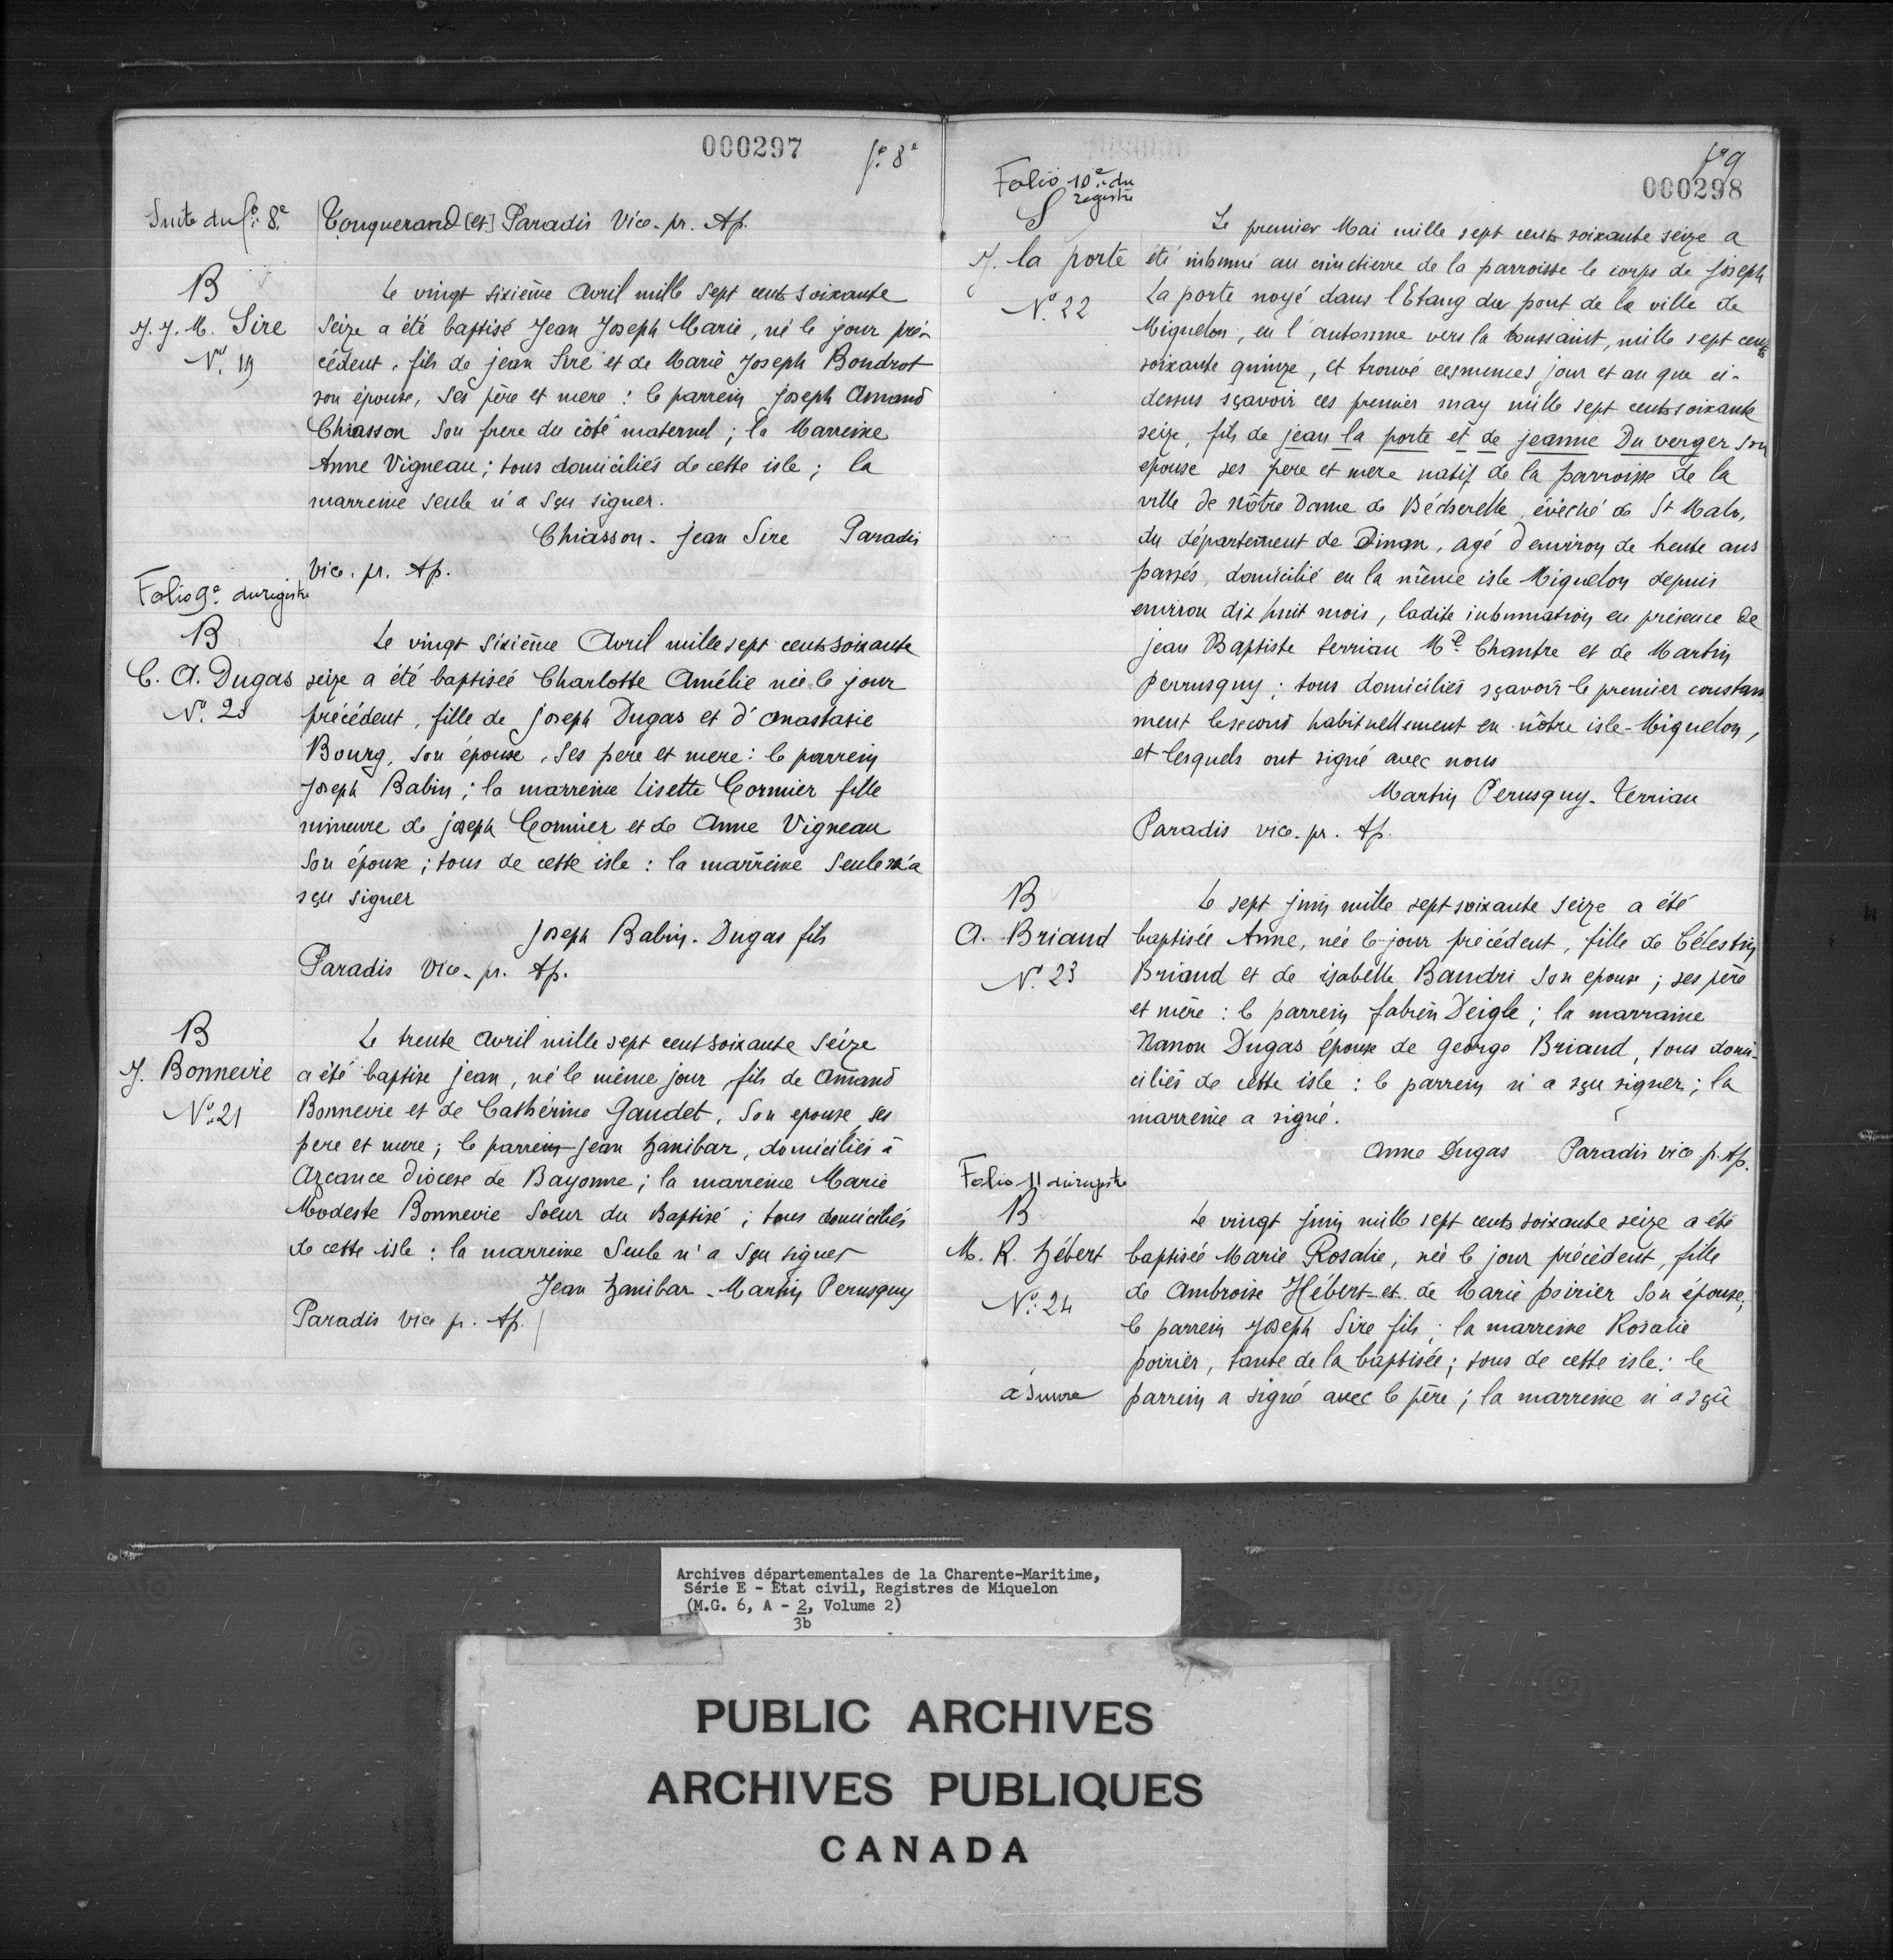 000297
fo. 8e
Suite du fo. 8e.
Couquerand [et] Paradis Vice-pr. Ap.
B
J. J. M. Sire
No. 19
Le vingt sixième Avril mille Sept cent soixante
Seize a été baptisé Jean Joseph Marie, né le jour pré-
cédent, fils de jean Sire et de Marie Joseph Boudrot
son épouse, Ses père et mere : le parrein Joseph Amand
Chiasson Son frere du côté maternel ; la Marreine
Anne Vigneau ; tous domiciliés de cette isle ; la
marreine seule n'a Sçu signer.
Chiasson - Jean Sire Paradis
Vice. pr. Ap.
Folio 9e. du registre
B
C. A. Dugas
No. 20
Le vingt Sixième Avril mille sept cent soixante
seize a été baptisée Charlotte Amélie née le jour
précédent, fille de joseph Dugas et d'Anastasie
Bourg, son épouse, Ses pere et mere : le parrein
Joseph Babin ; la marreine Lisette Cormier fille
mineure de joseph Cormier et de Anne Vigneau
Son épouse ; tous de cette isle : la marreine Seule n'a
sçu signer
Joseph Babin - Dugas fils
Paradis Vice-pr. Ap.
B
J. Bonnevie
No. 21
Le trente Avril mille sept cent soixante Seize
a été baptise jean, né le même jour, fils de Amand
Bonnevie et de Cathérine Gaudet, Son epouse, ses
pere et mere ; le parrein jean hanibar, domiciliés à
Azcance diocese de Bayonne ; la marreine Marie
Modeste Bonnevie Soeur du Baptisé ; tous domiciliés
de cette isle : la marreine Seule n'a Sçu signer
Jean hanibar - Martin Perusquy
Paradis Vice pr. Ap.
fo 9
000298
Folio 10e. du
registre
S
J. la porte
No. 22
Le premier Mai mille sept cent soixante seize a
été inhumé au cimetierre de la parroisse le corps de joseph
La porte noyé dans l'Etang du pont de la ville de
Miquelon, en l'automne vers la toussaint, mille sept cent
soixante quinze, et trouvé cesmemes jour et an que ci-
dessus sçavoir ces premier may mille sept cent soixante
seize, fils de jean la porte et de jeanne Du verger son
epouse ses pere et mere natif de la parroisse de la
ville de nôtre Dame de Bécherelle, évêché de St Malo,
du département de Dinan, agé d'environ de trente ans
passés, domicilié en la même isle Miquelon depuis
environ dix huit mois, ladite inhumation en présence de
jean Baptiste terriau Md. Chantre et de Martin
Perrusquy ; tous domiciliés sçavoir le premier constam
ment le second habituellement en nôtre isle-Miquelon,
et lesquels ont signé avec nous
Martin Perusquy - Terriau
Paradis vice-pr. Ap.
B
A. Briand
No. 23
Le sept juin mille sept soixante seize a été
baptisée Anne, née le jour précédent, fille de Célestin
Briand et de isabelle Baudri son epouse ; ses père
et mère : le parrein fabien Deigle ; la marraine
Nanon Dugas épouse de George Briand, tous domi-
ciliés de cette isle : le parrein n'a sçu signer ; la
marreine a signé.
Anne Dugas Paradis vice p. Ap.
Folio 11 du registre
B
M. R. hébert
No. 24
Le vingt juin mille sept cent soixante seize a été
baptisée Marie Rosalie, née le jour précédent, fille
de Ambroise Hébert et de Marie poirier Son épouse,
le parrein Joseph Sire fils ; la marreine Rosalie
poirier, tante de la baptisée ; tous de cette isle : le
parrein a signé avec le père ; la marreine n'a sçû
à suivre
Archives départementales de la Charente-Maritime,
Série E - État civil, Registres de Miquelon
(M.G. 6, A - 2, Volume 2)
3b
PUBLIC ARCHIVES
ARCHIVES PUBLIQUES
CANADA